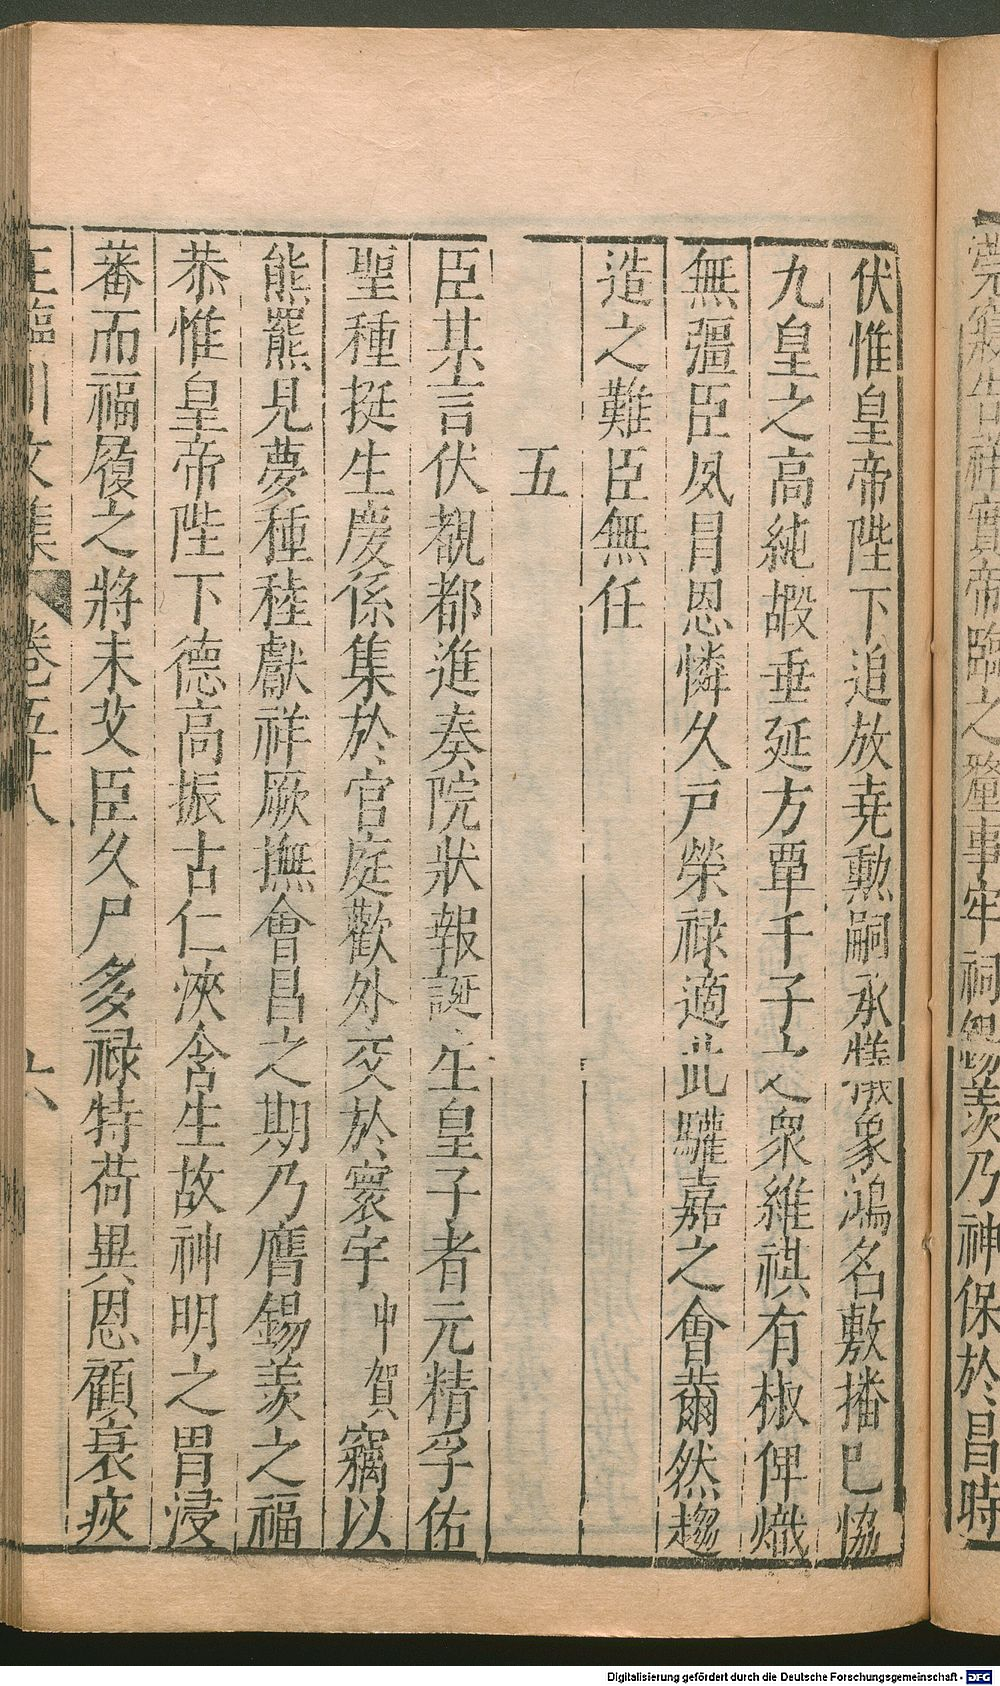 崇
祥實帝臨之釐事牢祠錫羨乃神保於昌時
伏惟皇帝陛下追放堯勲嗣承羲象鴻名敷播巳恊
九皇之高純嘏垂延方覃千子之衆維祺有椒俾熾
無彊臣夙冒恩憐久戸榮禄適此驩嘉之會薾然趨
造之難臣無任
五
臣某言伏覩都進奏院狀報誕生皇子者元精孚佑
聖種挺生慶係集於官庭歡外交於寰宇中賀竊以
熊羆見夢種稑獻祥厥撫會昌之期乃膺錫羨之福
恭惟皇帝陛下德高振古仁浹含生故神明之胃浸
蕃而福履之將未艾臣久尸多禄特荷異恩顧衰疾
王臨川文集 卷五十八 六
Digitalisierung gefördert durch die Deutsche Forschungsgemeinschaft - DFG